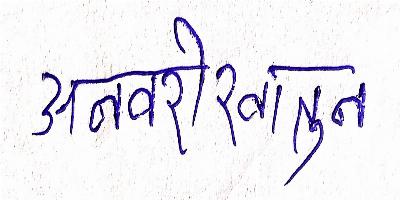 अनवरी खातुन